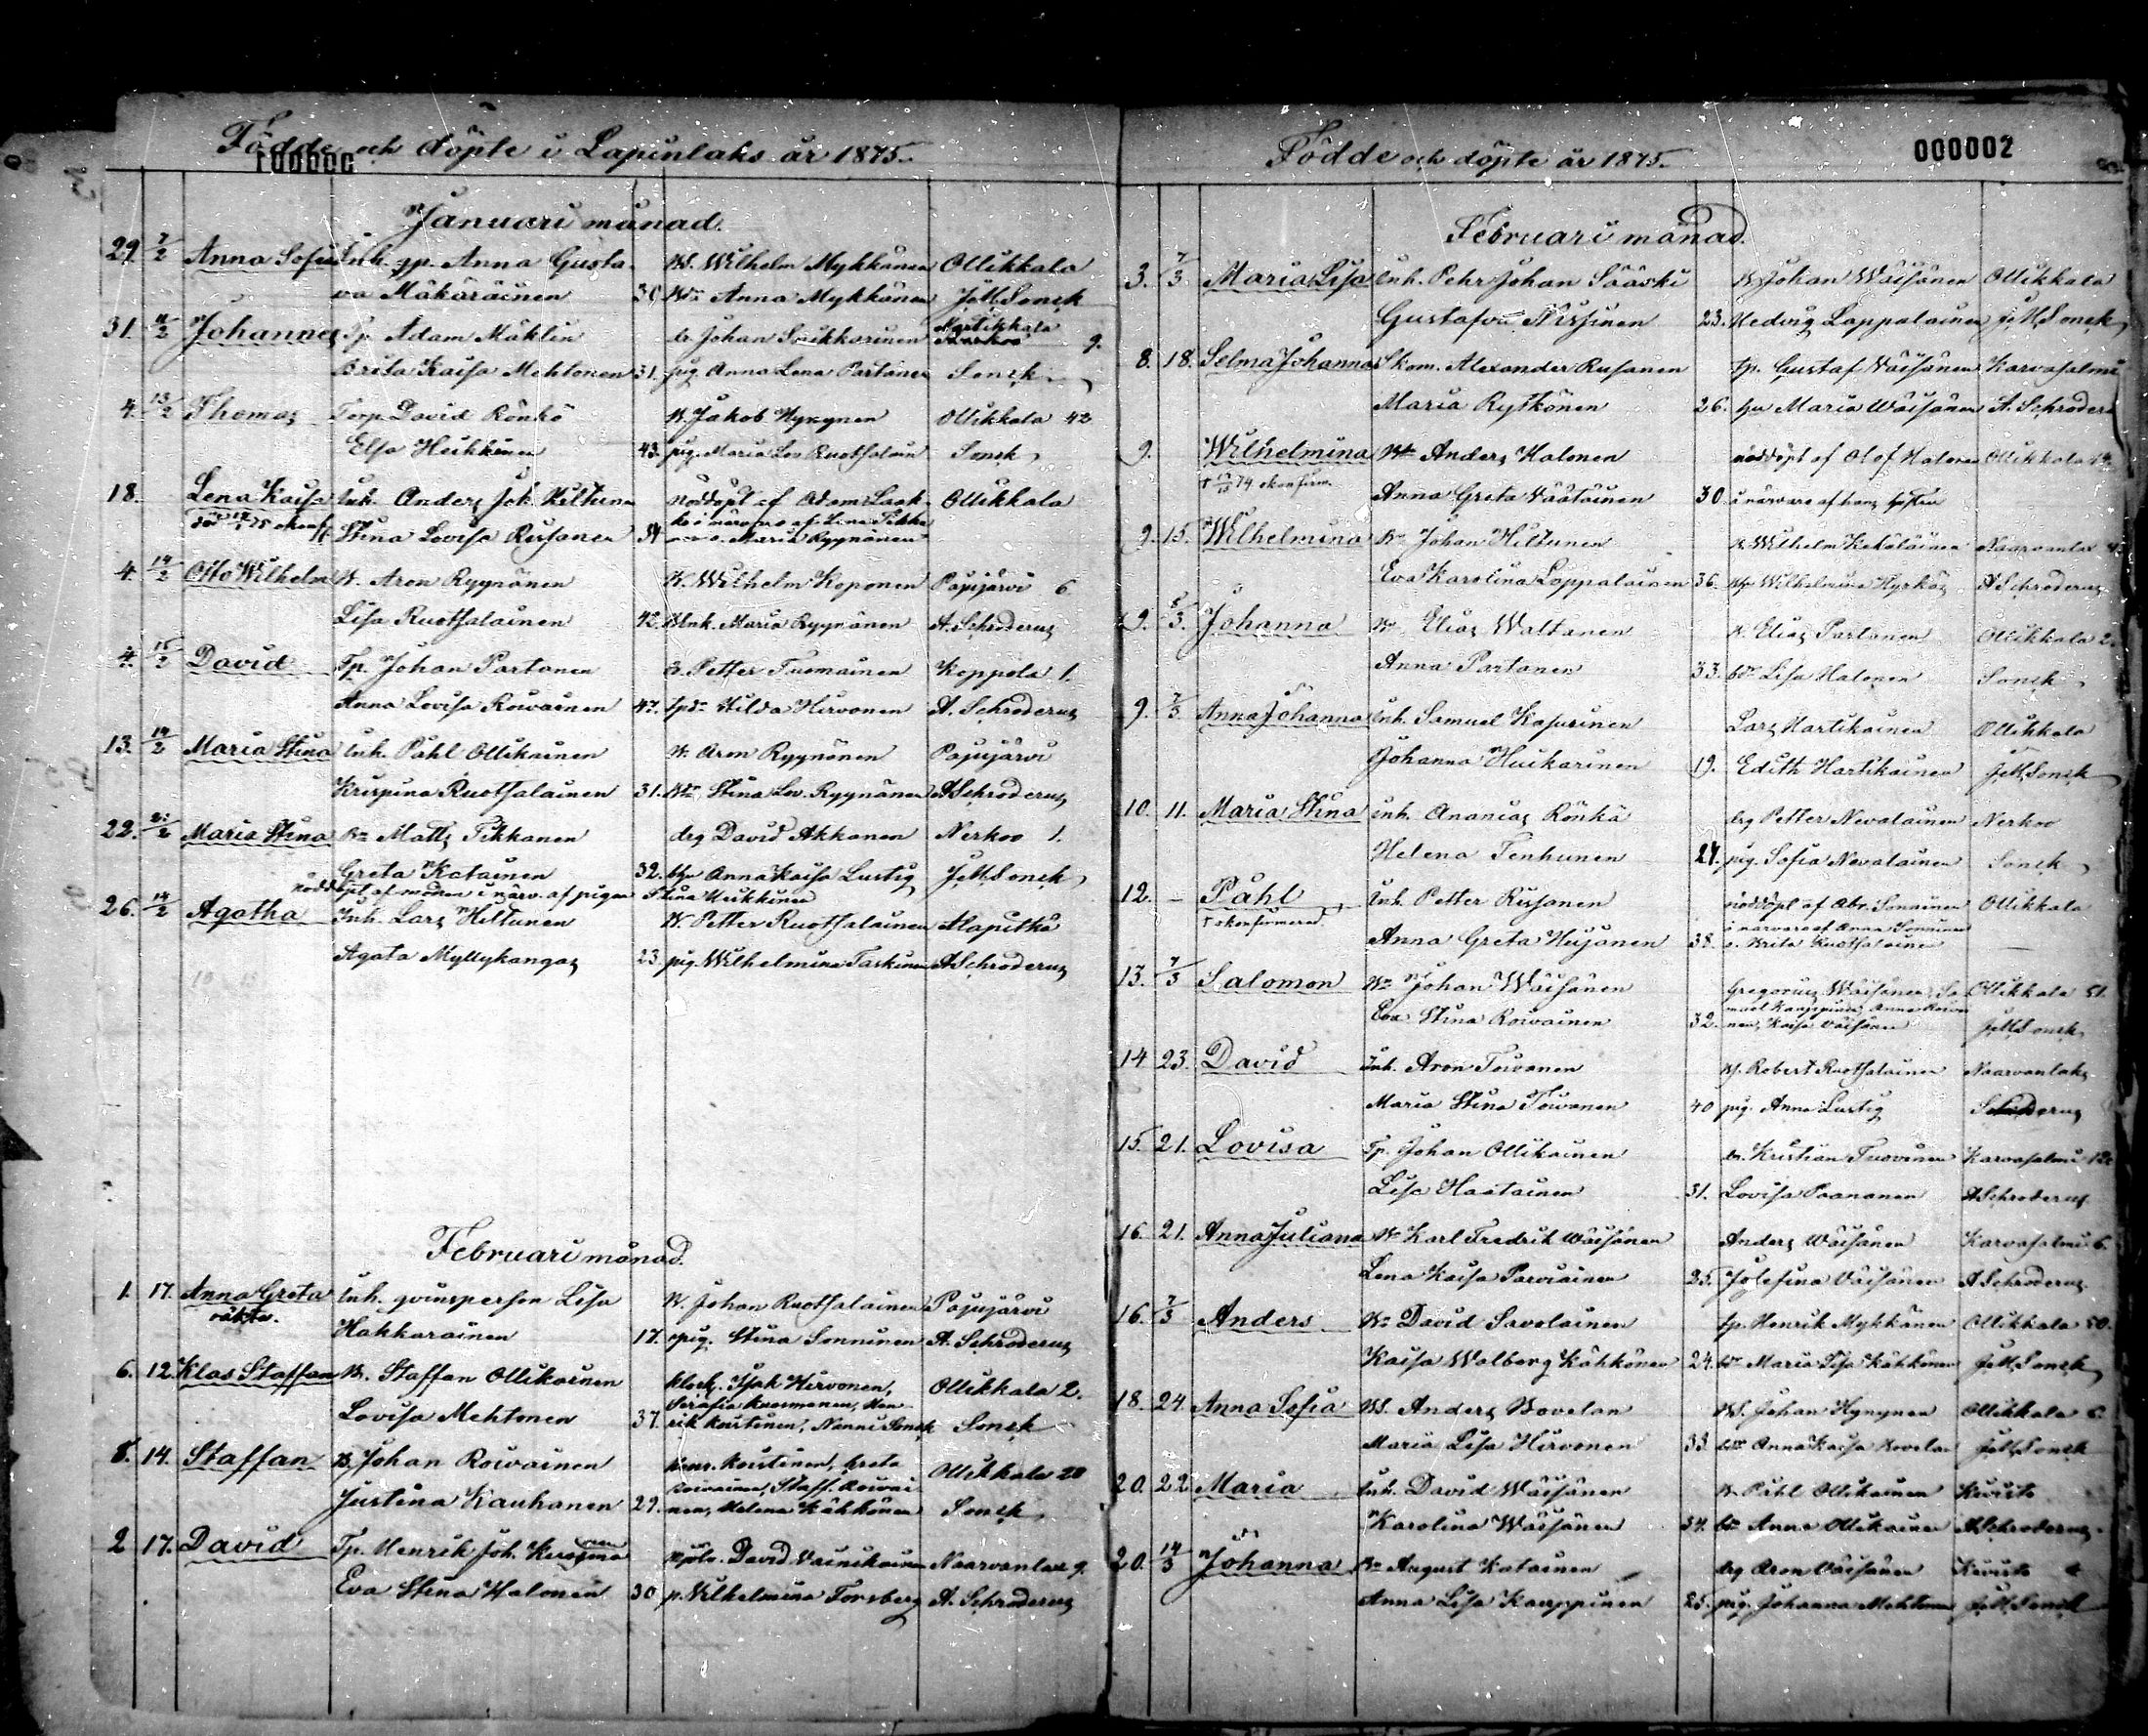 Födde och döpte i Lapinlaks år 1875.
Januari månad.
29. 7/2 Anna Sofia Inh. qp. Anna Gusta- W. Wilhelm Mykkänen Ollikkala
va Mäkäräinen 30 Anna Mykkänen J.M. Sonck
31. 11/2 Johannes Tp. Adam Mäklin Johan Martikkala 9.
Brita Kaisa Mehtonen 31. pig. Anna Lena Partanen Sonck
4. 13/2 Thomas Torp. David Rönkö Jakob Hynynen Ollikkala 42
Elsa Heikkinen 43. pig. Maria Lov. Ruotsalain Sonck
18. Lena Kaisa Inh. Anders Joh. Hiltunen Nöddöpt af Adam Ollikkala
Stina Lovisa Rusanen 34 o. Maria Ryynänen
4. 14/2 Otto Wilhelm W. Aron Ryynänen W. Wilhelm Koponen Pajujärvi 6
Lisa Ruotsalainen 42. Maria Ryynänen A. Schroderus
4. 15/2 David Tp. Johan Partanen Petter Tuomainen Keppola 1.
Anna Lovisa Roivainen 47. Hilda Hirvonen A. Schroderus
13. 14/2 Maria Stina Inh. Påhl Ollikainen W. Aron Ryynänen Pajujärvi
Krispina Ruotsalainen 31. Stina Lov. Ryynänen A Schroderus
22. 21/2 Maria Stina Matts Tikkanen drg David Akkanen Nerkoo 1.
Greta Katainen 32. Anna Kaisa Lustig J.M. Sonck
Nöddöpt af modren i närv. af pigan Stina Heikkinen
26. 14/2 Agatha Inh. Lars Hiltunen W. Petter Ruotsalainen Alapitkä
Agata Myllykangas 23. pig. Wilhelmina Taskinen A Schroderus
Februari månad.
1. 17. Anna Greta Inh. qvinsperson Lisa W. Johan Ruotsalainen Pajujärvi
oäkta. Hakkarainen 17. pig. Stina Sonninen A. Schroderus
6. 12. Klas Staffan W. Staffan Ollikainen klock. Isak Hirvonen, Ollikkala 2.
Serafia Hen-
Lovisa Mehtonen 37. rik Koistinen, Nanni Sonck Sonck
8. 14. Staffan B. Johan Roivainen Henr. Koistinen, Greta Ollikkala 20
Roivainen, Staff. Roivai-
Justina Kauhanen 29. nen, Helena Kähkönen Sonck
2 17. David Tp. Henrik Joh. David Vainikainen Naarvanlax 9.
Eva Stina Halonen 30 p. Wilhelmina Forsberg A. Schroderus
Födde och döpte år 1875.
000002
Februari månad.
3. 7/3 Maria Lisa Inh. Pehr Johan Sääski W Johan Wäisänen Ollikkala
Gustafva Nissinen 23. Hedvig Lappalainen J.M. Sonck
8. 18. Selma Johanna Skom. Alexander Rusanen tp. Gustaf Wäisänen Karvasalmi
Maria Rytkönen 26. Maria Wäisänen A. Schroderus
9. Wilhelmina Anders Halonen nöddöpt af Olof Halonen Ollikkala
Anna Greta Väätäinen 30 i närvaro af hans
9. 15. Wilhelmina Johan Hiltunen W. Wilhelm Kekäläinen Naarvanlax
Eva Karolina Lappalainen 36. A Schroderus
9. 8/3. Johanna Elias Waltanen Elias Partanen Ollikkala 2.
Anna Partanen 33. Lisa Halonen Sonck
9. 7/3 Anna Johanna Inh. Samuel Kasurinen Lars Martikainen Ollikkala
Johanna Huikarinen 19. Edith Martikainen J.M. Sonck
10. 11. Maria Stina Inh. Ananias Rönkä drg Petter Nevalainen Nerkoo
Helena Tenhunen 27. pig. Sofia Nevalainen Sonck
12. – Påhl Inh. Petter Rusanen nöddöpt af Abr. Ollikkala
† okonfirmerad. i närvaro af Anna Sonninen
Anna Greta Hujanen 38. o. Brita Ruotsalainen
13. 7/3 Salomon Johan Wäisänen Gregorius Wäisänen, Sa- Ollikkala 51.
Eva Stina Roivainen 32. nen, Kaisa Väisänen J.M. Sonck
14 23. David Inh. Aron Toivanen W. Robert Ruotsalainen Naarvanlaks
Maria Stina Toivanen 40 pig. Anna Lustig Schroderus
15. 21. Lovisa Tp. Johan Ollikainen Kristian Tuovinen Karvasalmi 12
Lisa Haatainen 31. Lovisa Paananen A Schroderus
16. 21. Anna Juliana Karl Fredrik Wäisänen Anders Wäisänen Karvasalmi 6.
Lena Kaisa Parviainen 25. Josefina Väisänen A Schroderus
16. 7/3 Anders David Savolainen tp. Henrik Mykkänen Ollikkala 50.
Kaisa Walborg Kähkönen 24. Maria Lisa Kähkönen J.M. Sonck
18. 24. Anna Sofia Anders Bovelan Johan Hynynen Ollikkala 6.
Maria Lisa Hirvonen 33. Anna Kaisa Bovelan J.M. Sonck
20. 22. Maria Inh. David Wäisänen W. Påhl Ollikainen
Karolina Wäisänen 34. Anna Ollikainen A Schroderus
20. 14/3 Johanna August Katainen drg Aron Väisänen
Anna Lisa Kauppinen 25. pig. Johanna Mehtonen J.M. Sonck